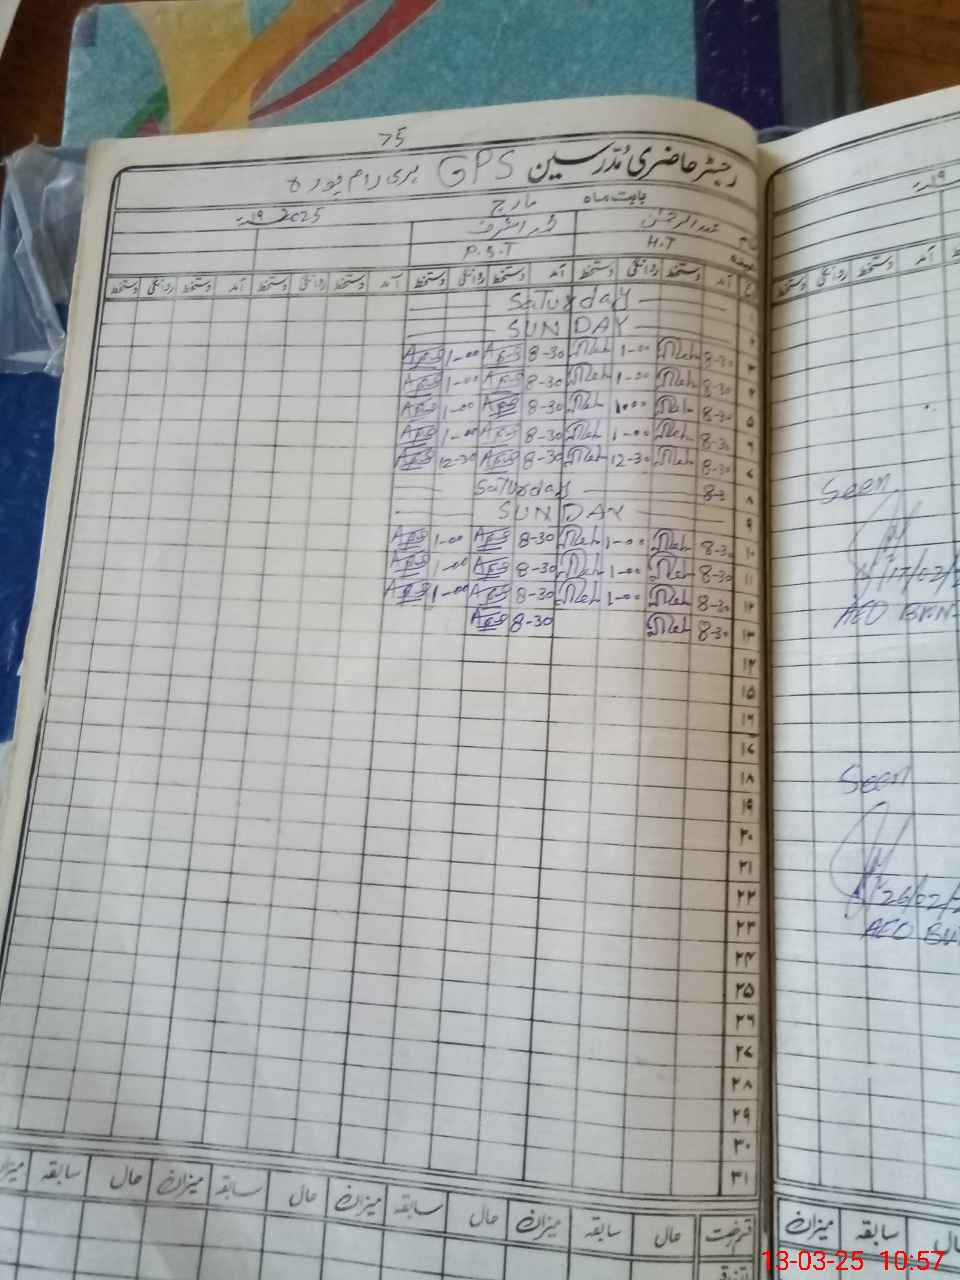 75
رجسٹر حاضری مُدرّسین GPS ہری رام پورہ
بابت ماہ مارچ 2025 ۱۹ء
نام عبدالرحمٰن
عہدہ H.T P.S.T
تاریخ آمد دستخط روانگی دستخط آمد دستخط روانگی دستخط آمد دستخط روانگی دستخط آمد دستخط روانگی دستخط
۱ Saturday
۲ SUNDAY
۳ 8-30 1-00 8-30 1-00
۴ 8-30 1-00 8-30 1-00
۵ 8-30 1-00 8-30 1-00
۶ 8-30 1-00 8-30 1-00
۷ 8-30 12-30 8-30 12-30
۸ 8-3 Saturday
۹ SUNDAY
۱۰ 8-30 1-00 8-30 1-00
۱۱ 8-30 1-00 8-30 1-00
۱۲ 8-30 1-00 8-30 1-00
۱۳ 8-30 8-30
۱۴
۱۵
۱۶
۱۷
۱۸
۱۹
۲۰
۲۱
۲۲
۲۳
۲۴
۲۵
۲۶
۲۷
۲۸
۲۹
۳۰
۳۱
قسم رخصت حال سابقہ میزان حال سابقہ میزان حال سابقہ میزان حال سابقہ میزان
۱۹ء
دستخط روانگی دستخط
Seen
17/02/2
AEO
Seen
26/02/2
AEO
حال سابقہ میزان
13-03-25 10:57